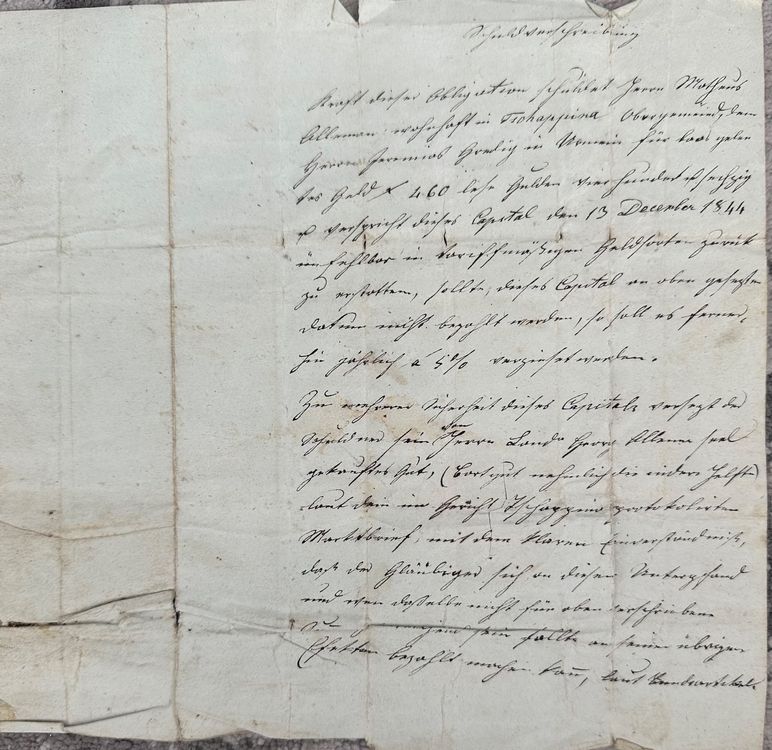 Schuldverschreibung
Kraft dieser Obligation schuldet Herrn Matheus
Alleman wohnhaft in Tschappina Obergemeind, dem
Herrn Jeremias Gredig in Urmein für baar gelen
tes Geld f 460 lese Gulden vierhundert u sechzig
u verspricht dieses Capital den 13 December 1844
unfehlbar in tariffmäßigen Geldsorten zurük
zu erstatten, sollte, dieses Capital an oben gesezten
datum nicht bezahlt werden, so soll es ferner,
hin jährlich á 5 % verzinset werden.
Zu mehrerer Sicherheit dieses Capitals versezt der
Schuldner sein von Herrn Landa Georg Allema seel
gekauftes Gut, ( nehmlich die indere Helfte)
laut dem im Gericht Tschappina protokolirten
Marktbrief, mit dem klaren Einverständniß,
daß der Gläubiger sich an diesen Unterpfand
und wen dasselbe nicht für oben verschriebene
sein sollte an seinen übrigen
Efekten bezahlt machen kan, laut Landsartikel.